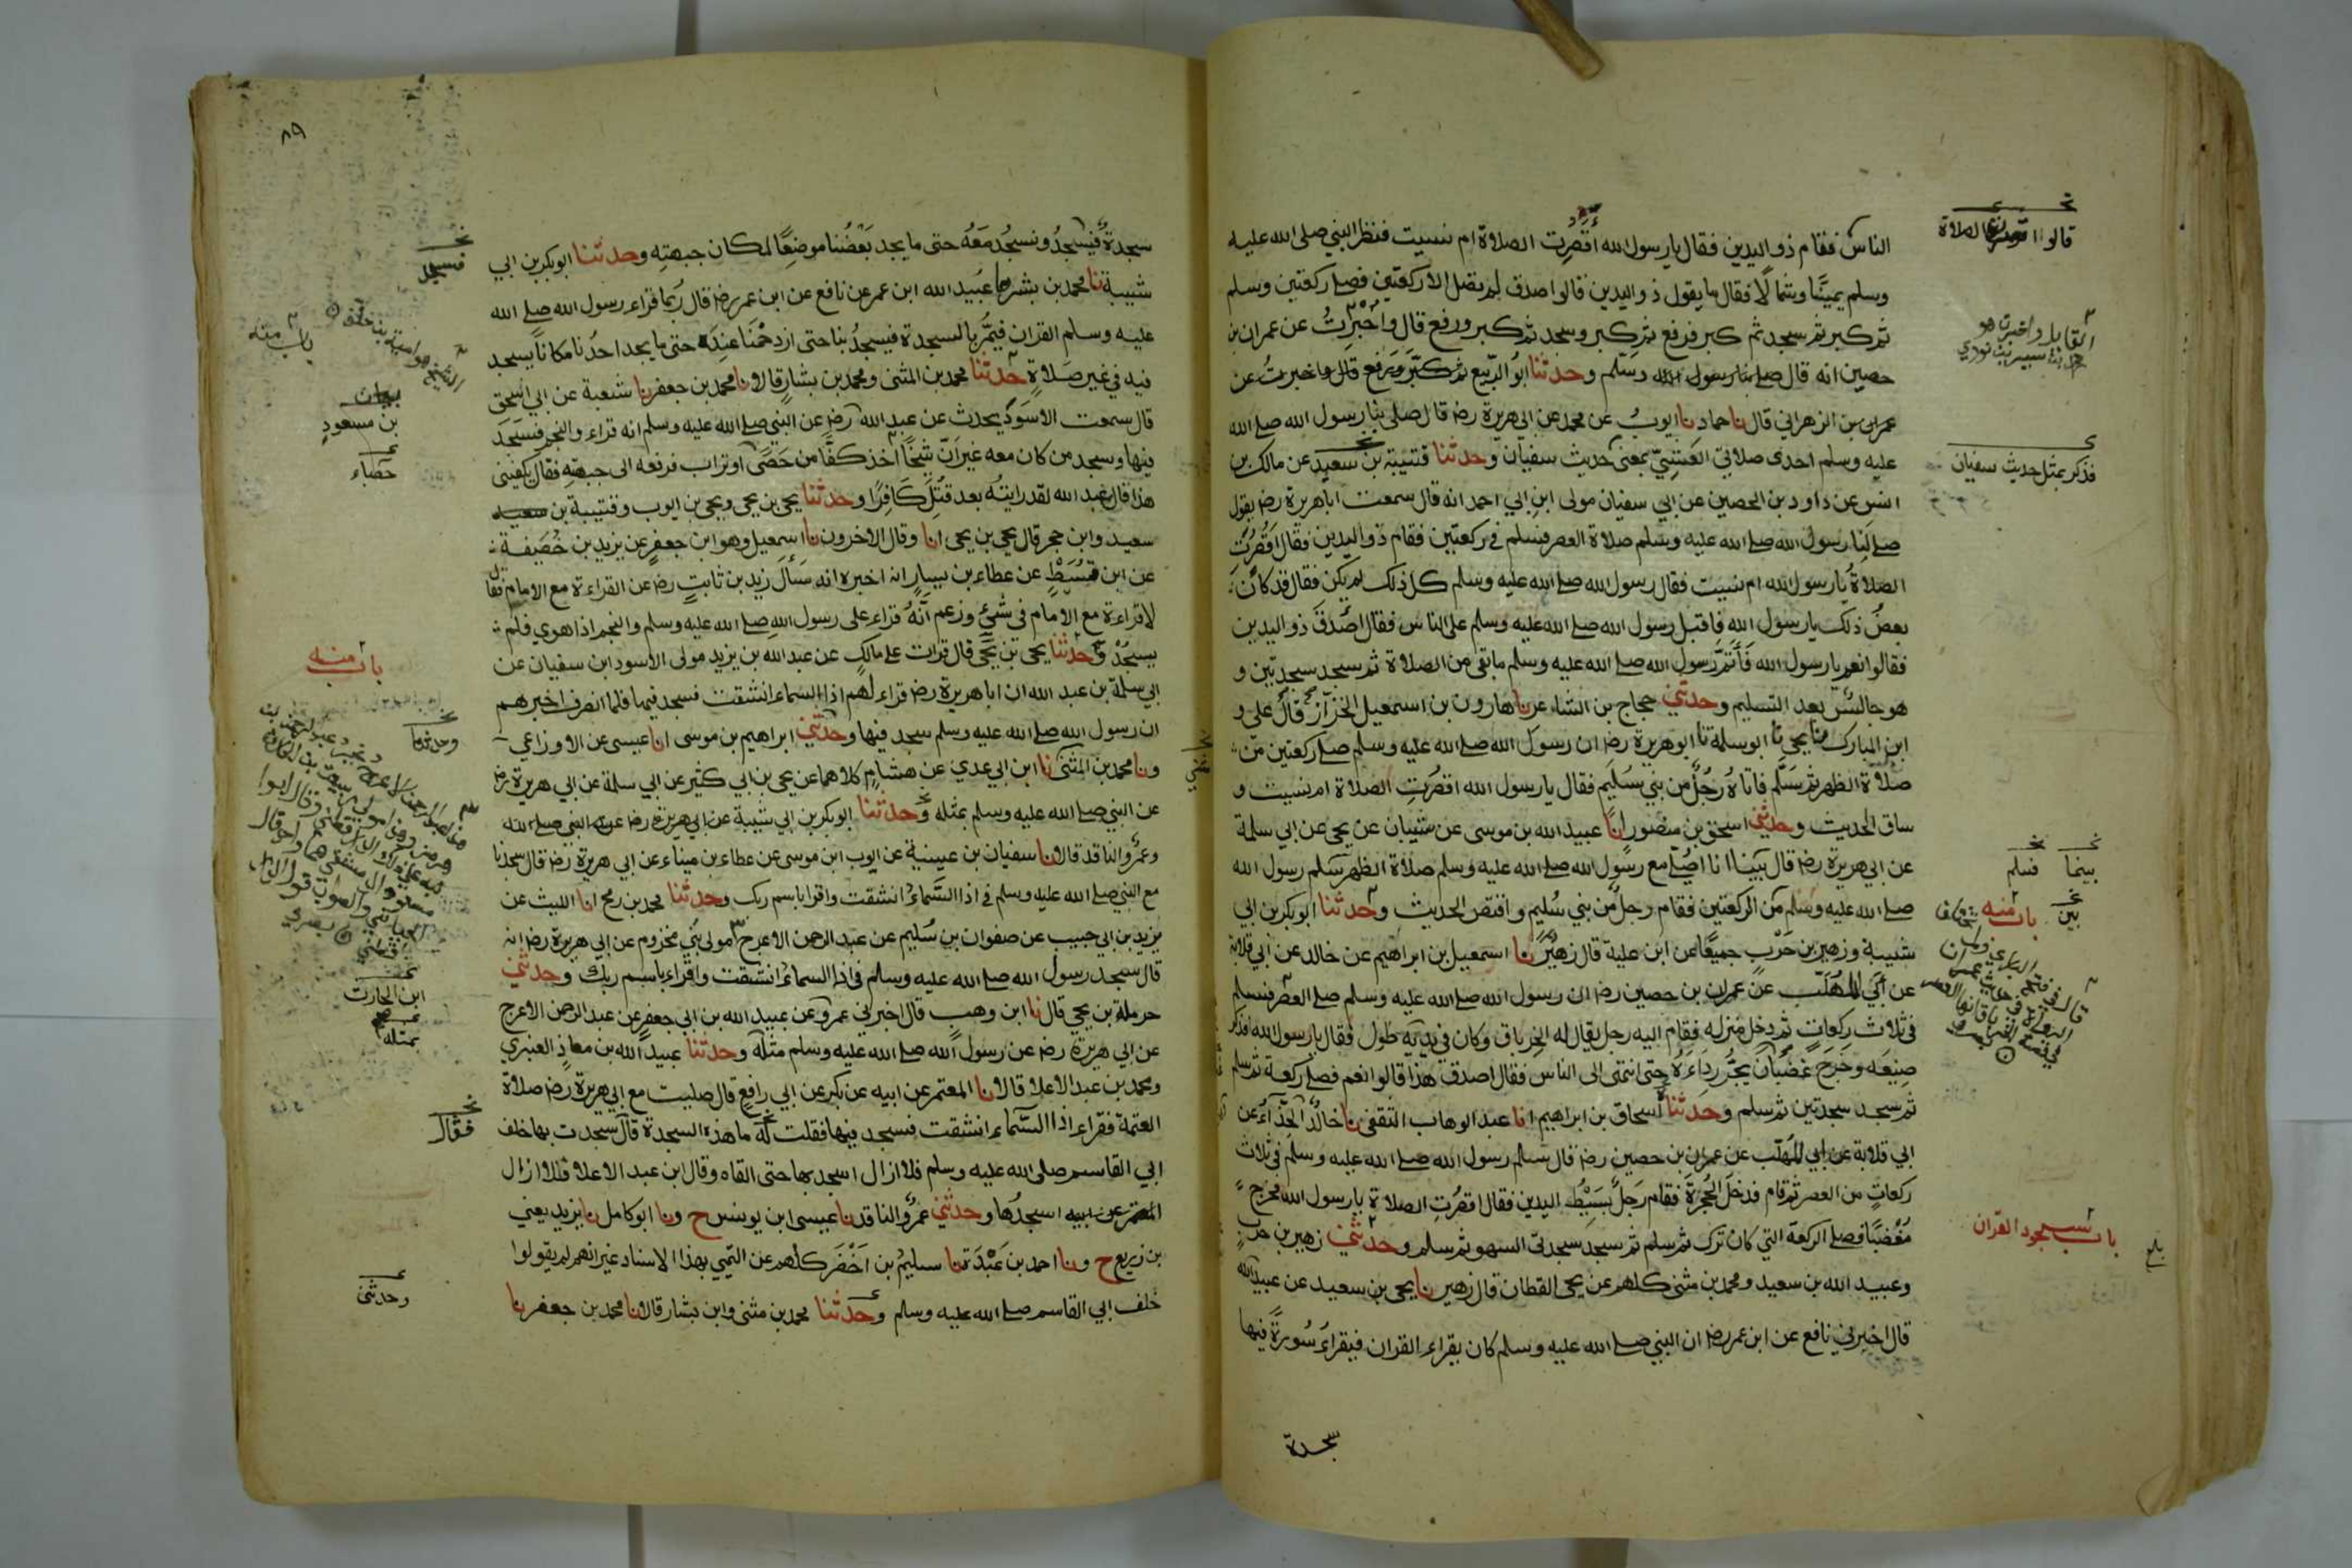 الناس فقام ذو اليدين فقال يا رسول الله أقصرت الصلاة ام نسيت فنظر النبي صلى الله عليه
وسلم يمينا وشمالا فقال ما يقول ذو اليدين قالوا صدق لم تصل الا ركعتين فصلى ركعتين وسلم
ثم كبر ثم سجد ثم كبر فرفع ثم كبر وسجد ثم كبر ورفع قال وأخبرت عن عمران بن
حصين انه قال وسلم وحدثنا ابو الربيع
الزهراني قال نا حماد نا ايوب عن محمد عن ابي هريرة رضـ قال صلى بنا رسول الله صلى الله
عليه وسلم احدى صلاتي العشي بمعنى حديث سفيان وحدثنا قتيبة بن سعيد عن مالك بن
انس عن داود بن الحصين عن ابي سفيان مولى ابن ابي احمد انه قال سمعت ابا هريرة رضـ يقول
صلى لنا رسول الله صلى الله عليه وسلم صلاة العصر فسلم في ركعتين فقام ذو اليدين فقال اقصرت
الصلاة يا رسول الله ام نسيت فقال رسول الله صلى الله عليه وسلم كل ذلك لم يكن فقال قد كان
بعض ذلك يا رسول الله فاقبل رسول الله صلى الله عليه وسلم على الناس فقال أصدق ذو اليدين
فقالوا نعم يا رسول الله فأتم رسول الله صلى الله عليه وسلم ما بقي من الصلاة ثم سجد سجدتين و
هو جالس بعد التسليم وحدثني حجاج بن الشاعر نا هارون بن اسمعيل الخزاز قال علي و
ابن المبارك نا يحيى نا ابو سلمة نا ابو هريرة رضـ ان رسول الله صلى الله عليه وسلم صلى ركعتين من
صلاة الظهر ثم سلم فاتاه رجل من بني سليم فقال يا رسول الله اقصرت الصلاة ام نسيت و
ساق الحديث وحدثني اسحق بن منصور انا عبيد الله بن موسى عن شيبان عن يحيى عن ابي سلمة
عن ابي هريرة رضـ قال بينا انا اصلي مع رسول الله صلى الله عليه وسلم صلاة الظهر سلم رسول الله
صلى الله عليه وسلم من الركعتين فقام رجل من بني سليم واقتص الحديث وحدثنا ابو بكر بن ابي
شيبة وزهير بن حرب جميعا عن ابن علية قال زهير نا اسمعيل بن ابراهيم عن خالد عن ابي قلابة
عن أبي المهلب عن عمران بن حصين رضـ ان رسول الله صلى الله عليه وسلم صلى العصر فسلم
في ثلاث ركعات ثم دخل منزله فقام اليه رجل يقال له الخرباق وكان في يديه طول فقال يا رسول الله فذكر
صنيعه وخرج غضبان يجر رداءه حتى انتهى الى الناس فقال اصدق هذا قالوا نعم فصلى ركعة ثم سلم
ثم سجد سجدتين ثم سلم وحدثنا اسحاق بن ابراهيم انا عبد الوهاب الثقفي نا خالد الحذاء عن
ابي قلابة عن ابي المهلب عن عمران بن حصين رضـ قال سلم رسول الله صلى الله عليه وسلم في ثلاث
ركعات من العصر ثم قام فدخل الحجرة فقام رجل بسيط اليدين فقال اقصرت الصلاة يا رسول الله فخرج
مغضبا فصلى الركعة التي كان ترك ثم سلم ثم سجد سجدتي السهو ثم سلم وحدثني زهير بن حرب
وعبيد الله بن سعيد ومحمد بن مثنى كلهم عن يحيى القطان قال زهير نا يحيى بن سعيد عن عبيد الله
قال اخبرني نافع عن ابن عمر رضـ ان النبي صلى الله عليه وسلم كان يقراء القران فيقراء سورة فيها
سجدة
قالوا الصلاة
القائل واخبرت هو
فذكر بمثل حديث سفيان
بينما فسلم
بين
باب منه
باب سجود القران
بلغ
٨٩
سجدة فيسجد ونسجد معه حتى ما يجد بعضنا موضعا لمكان جبهته وحدثنا ابو بكر بن ابي
شيبة نا محمد بن بشر نا عبيد الله ابن عمر عن نافع عن ابن عمر رضـ قال ربما قراء رسول الله صلى الله
عليه وسلم القران فيمر بالسجدة فيسجد بنا حتى ازدحمنا عنده حتى ما يجد احدنا مكانا يسجد
فيه في غير صلاة حدثنا محمد بن المثنى ومحمد بن بشار قالا نا محمد بن جعفر نا شعبة عن ابي اسحق
قال سمعت الاسود يحدث عن عبد الله رضـ عن النبي صلى الله عليه وسلم انه قراء والنجم فسجد
فيها وسجد من كان معه غير ان شيخا أخذ كفا من حصى او تراب فرفعه الى جبهته فقال يكفيني
هذا قال عبد الله لقد رايته بعد قتل كافرا وحدثنا يحيى بن يحيى ويحيى بن ايوب وقتيبة بن سعيد
سعيد وابن حجر قال يحيى بن يحيى انا وقال الاخرون نا اسمعيل وهو ابن جعفر عن يزيد بن خصيفة
عن ابن قسيط عن عطاء بن يسار انه اخبره انه سأل زيد بن ثابت رضـ عن القراءة مع الامام فقال
لا قراءة مع الامام في شئ وزعم أنه قراء على رسول الله صلى الله عليه وسلم والنجم اذا هوى فلم
يسجد وحدثنا يحيى بن يحيى قال قرات على مالك عن عبد الله بن يزيد مولى الاسود ابن سفيان عن
ابي سلمة بن عبد الله ان ابا هريرة رضـ قراء لهم اذا السماء انشقت فسجد فيها فلما انصرف اخبرهم
ان رسول الله صلى الله عليه وسلم سجد فيها وحدثني ابراهيم بن موسى انا عيسى عن الاوزاعي
ونا محمد بن المثنى نا ابن ابي عدي عن هشام كلاهما عن يحيى بن ابي كثير عن ابي سلمة عن ابي هريرة رضـ
عن النبي صلى الله عليه وسلم بمثله وحدثنا ابو بكر بن ابي شيبة
وعمرو الناقد قالا نا سفيان بن عيينة عن ايوب ابن موسى عن عطاء بن ميناء عن ابي هريرة رضـ قال سجدنا
مع النبي صلى الله عليه وسلم في اذا السماء انشقت واقرا باسم ربك وحدثنا محمد بن رمح انا الليث عن
يزيد بن ابي حبيب عن صفوان بن سليم عن عبد الرحمن الاعرج مولى بني مخزوم عن ابي هريرة رضـ انه
قال سجد رسول الله صلى الله عليه وسلم في اذا السماء انشقت واقراء باسم ربك وحدثني
حرملة بن يحيى قال نا ابن وهب قال اخبرني عمرو عن عبيد الله بن ابي جعفر عن عبد الرحمن الاعرج
عن ابي هريرة رضـ عن رسول الله صلى الله عليه وسلم مثله وحدثنا عبيد الله بن معاذ العنبري
ومحمد بن عبد الاعلا قالا نا المعتمر عن ابيه عن بكر عن ابي رافع قال صليت مع ابي هريرة رضـ صلاة
العتمة فقراء اذا السماء انشقت فسجد فيها فقلت له ما هذه السجدة قال سجدت بها خلف
ابي القاسم صلى الله عليه وسلم فلا ازال اسجد بها حتى القاه وقال ابن عبد الاعلا فلا ازال
اسجدها وحدثني عمرو الناقد نا عيسى ابن يونس ح ونا ابو كامل نا يزيد يعني
بن زريع ح ونا احمد بن عبدة نا سليم بن اخضر كلهم عن التيمي بهذا الاسناد غير انهم لم يقولوا
خلف ابي القاسم صلى الله عليه وسلم وحدثنا محمد بن مثنى وابن بشار قالا نا محمد بن جعفر نا
فسجد
باب منه
الشيخ هو امية بن خلف
بن مسعود
حصباء
باب منه
وحدثنا
ابن الحارث
بمثله
فقال
وحدثني